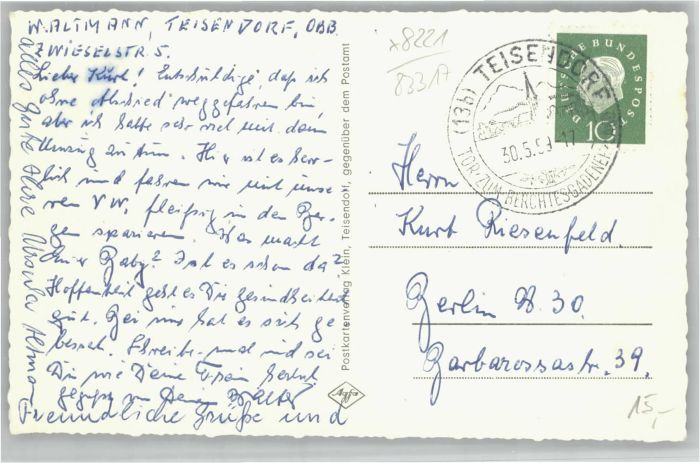 W. ALTMANN, TEISENDORF, OBB.
ZWIESELSTR. 5.
Lieber Kurt! Entschuldige, daß ich
ohne Abschied weggefahren bin,
aber ich hatte sehr viel mit dem
Umzug zu tun. Hier ist es herr-
lich und fahren wir mit unse
ren VW. fleißig in den Ber-
gen spazieren. Was macht
Euer Baby? Ist es schon da?
Hoffentlich geht es Dir gesundheitlich
gut. Bei uns hat es sich ge
bessert. Schreibe und sei
Du wie Deine Frau herzl.
gegrüßt von Deinem Walter
Freundliche Grüße und
alles Gute Ihre Ursula Altmann
Postkartenverlag Klein, Teisendorf, gegenüber dem Postamt
Agfa
x8221
83317
(13b) TEISENDORF
30.5.59-17
TOR ZUM BERCHTESGADENER
DEUTSCHE BUNDESPOST
10
Herrn
Kurt Riesenfeld.
Berlin W. 30.
Barbarossastr. 39.
15,-